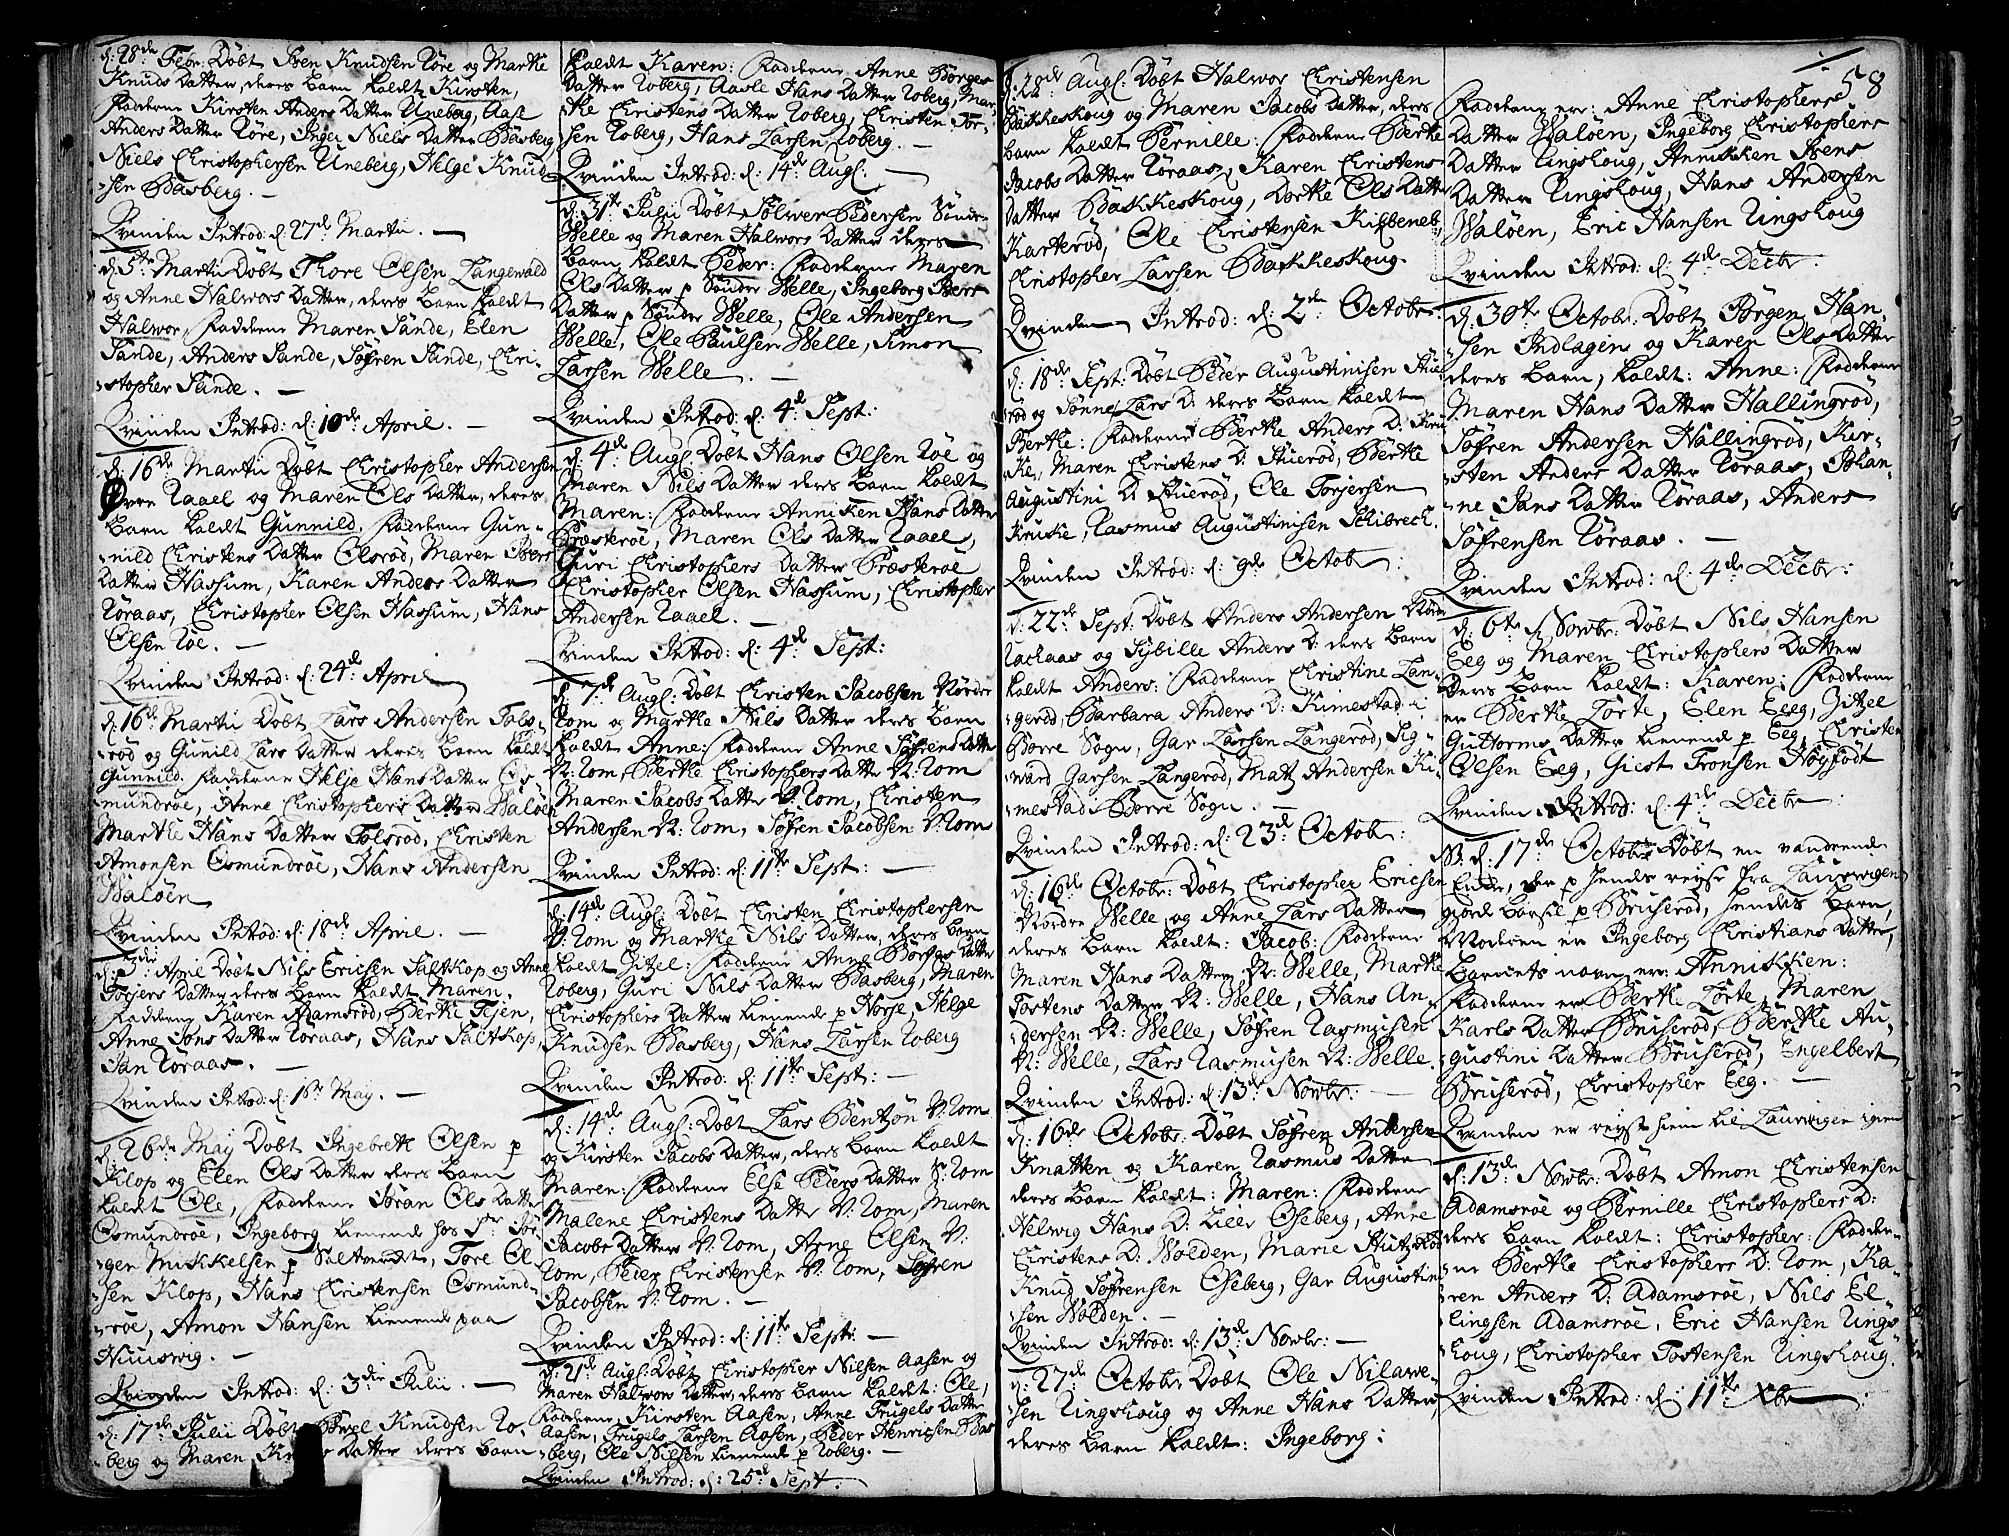 d: 28de Febr: Döbt Iven Knudsen Röre og Marthe
Knuds Datter, deres Barn kaldt Kirsten,
Fadderne Kirsten Anders Datter Uneberg, Aase
Anders Datter Röre, Inger Niels Datter Basberg
Niels Christophersen Uneberg, Helge Knud-
-sen Basberg. —
Qvinden Introd: d: 27de Martii. —
d: 5te Martii Döbt Thore Olsen Langevald
og Anne Halvors Datter, deres Barn kaldt
Halvor, Fadderne Maren Sande, Elen
Sande, Anders Sande, Söfren Sande, Chri-
-stopher Sande. —
Qvinden Introd: d: 10de April. —
d: 16de Martii Döbt Christopher Andersen
Raael og Maren Ols Datter, deres
Barn kaldt Gunnild. Fadderne Gun-
-nild Christens Datter Olsröd, Maren Ivers
Datter Hassum, Karen Anders Datter
Röraas, Christopher Olsen Hassum, Hans
Olsen Röe. —
Qvinden Introd: d: 24de April
d: 16de Martii Döbt Lars Andersen Tols-
-röd og Gunild Lars Datter deres Barn kaldt
Gunnild. Fadderne Helje Hans Datter Os-
mundröe, Anne Christophers Datter Waløen
Marthe Hans Datter Tolsröd, Christen
Amonsen Osmundröe, Hans Andersen
Waløen
Qvinden Introd: d: 18de April. —
d: 3die April Döbt Nils Ericsen Saltkop og Anne
Torjers Datter deres Barn kaldt Maren.
Fadderne Karen Adamsröd, Berthe Tejen,
Anne Jons Datter Röraas, Hans Saltkop,
Jan Röraas. —
Qvinden Introd: d: 1ste May. —
d: 26de May Döbt Ingebreth Olsen p
Klop og Elen Ols Datter deres Barn
kaldt Ole, Fadderne Jöran Ols Datter
Osmundröe, Ingeborg tienende hos Sr Jör-
-gen Mikkelsen p Saltmendt, Tore Ol-
-sen Klop, Hans Christensen Osmund-
-röe, Amon Hansen tienende paa
Huuswig. —
Qvinden Introd: d: 3die Julii. —
d: 17de Julii Döbt Knudsen Ro-
-berg og Maren Datter deres Barn
kaldt Karen: Fadderne Anne Börges
Datter Roberg, Aasle Hans Datter Roberg, Mar-
the Christens Datter Roberg, Christen Tor-
sen Roberg, Hans Larsen Roberg. —
Qvinden Introd: d: 14de Augl. —
d: 31te Julii Döbt Sölwer Pedersen Sönder
Welle og Maren Halwors Datter deres
Barn kaldt Peder: Fadderne Maren
Ols Datter p Sönder Welle, Ingeborg Ivers
Datter p Sönder Welle, Ole Andersen
Welle, Ole Paulsen Welle, Simon
Larsen Welle. —
Qvinden Introd: d: 4de Sept:
d: 4de Augl Döbt Hans Olsen Röe og
Maren Nils Datter deres Barn kaldt
Maren: Fadderne Anniken Hans Datter
Præsteröe, Maren Ols Datter Raael,
Guri Christophers Datter Præsteröe
Christopher Olsen Hassum, Christopher
Andersen Raael. —
Qvinden Introd: d: 4de Sept:
d: 7de Augl: Döbt Christen Jacobsen Nordre
Rom og Marthe Nils Datter deres Barn
kaldt Anne: Fadderne Anne Söfrens Datter
N: Rom, Berthe Christophers Datter N: Rom
Maren Jacobs Datter N: Rom, Christen
Andersen N: Rom, Söfren Jacobsen N: Rom
Qvinden Introd: d: 11te Sept: —
d: 14de Augl: Döbt Christen Christophersen
N: Rom og Marthe Nils Datter, deres Barn
kaldt Zitzel: Fadderne Anne Börges Datter
Roberg, Guri Nils Datter Basberg, Maren
Christophers Datter tienende p Horse, Helge
Knudsen Basberg, Hans Larsen Roberg
Qvinden Introd: d: 11te Sept: —
d: 14de Augl: Döbt Lars Bentzön N: Rom
og Kirsten Jacobs Datter, deres Barn kaldt
Maren: Fadderne Else Peders Datter S: Rom
Malene Christens Datter N: Rom, Maren
Jacobs Datter N: Rom, Arne Olsen N:
Rom, Peder Christensen N: Rom, Söfren
Jacobsen N: Rom. —
Qvinden Introd: d: 11te Sept: —
d: 21de Augl: Döbt Christopher Nilsen Aasen og
Maren Halwors Datter, deres Barn kaldt: Ole,
Fadderne, Kirsten Aasen, Anne Trugels Datter
Aasen, Trugels Larsen Aasen, Peder Henricsen Bas-
berg, Ole Nielsen tienende p Roberg. —
Qvinden Introd: d: 25de Sept:
d: 28de Augl: Döbt Halwor Christensen
Bakkeskoug og Maren Jacobs Datter, deres
Barn kaldt Pernille: Fadderne Berthe
Jacobs Datter Röraas, Karen Christens
Datter Bakkeskoug, Dorthe Ols Datter
Karteröd, Ole Christensen
Christopher Larsen Bakkeskoug.
Qvinden Introd: d: 2den Octobr:
d: 18de Sept: Döbt Peder Augustinisen Stue-
röd og Sönne Lars D: deres Barn kaldt
Berthe: Fadderne Berthe Anders D: Kni-
ke, Maren Christens D: Stueröd, Berthe
Augustini D: Stueröd, Ole Torjersen
Knike, Rasmus Augustinisen Schibrech.
Qvinden Introd: d: 9de Octobr:
d: 22de Sept: Döbt Anders Andersen Nören
Rachaas og Sybille Anders D: deres Barn
kaldt Anders: Fadderne Christine Lan-
-geröd, Barbara Anders D: Kimestad i
Borre Sogn, Gar Larsen Langeröd, Sig-
ward Garsen Langeröd, Matz Andersen Ki-
-mestad i Borre Sogn. —
Qvinden Introd: d: 23de Octobr:
d: 16de Octobr: Döbt Christopher Ericsen
Nordre Welle og Anne Lars Datter
deres Barn kaldt: Jacob: Fadderne
Maren Hans Datter N: Welle, Marthe
Tostens Datter N: Welle, Hans An-
dersen N: Welle, Söfren Rasmusen
N: Welle, Lars Rasmusen N: Welle.
Qvinden Introd: d: 13de Novbr: —
d: 16de Octobr: Döbt Söfren Andersen
Knatten og Karen Rasmus Datter
deres Barn kaldt: Maren: Fadderne
Helwig Hans D: Lille Oseberg, Anne
Christens D: Wolden, Marie
Knud Söfrensen Oseberg, Gar Augustini-
sen Wolden. —
Qvinden Introd: d: 13de Novbr: —
d: 27de Octobr: Döbt Ole Nilawe-
-sen Ringshoug og Anne Hans Datter,
deres Barn kaldt: Ingeborg:
58
Fadderne er: Anne Christophers
Datter Waløen, Ingeborg Christophers
Datter Ringshoug, Annikken Ivens
Datter Ringshoug, Hans Andersen
Waløen, Eric Hansen Ringshoug
Qvinden Introd: d: 4de Decbr:
d: 30te Octobr: Döbt Börgen Han-
sen Indlagen og Karen Ols Datter
deres Barn, kaldt: Anne: Fadderne
Maren Hans Datter Hallingröd,
Söfren Andersen Hallingröd, Kir-
-sten Anders Datter Röraas, Johan-
-ne Jans Datter Röraas, Anders
Söfrensen Röraas. —
Qvinden Introd: d: 4de Decbr:
d: 6te Novbr: Döbt Nils Hansen
Eeg og Maren Christophers Datter
deres Barn kaldt: Karen: Fadderne
er Berthe Torte, Elen Eeg, Zitzel
Guttorms Datter tienende p Eeg, Christen
Olsen Eeg, Giest Tronsen Høyfödt
Qvinden Introd: d: 4de Decbr:
N: d: 17de Octobr: Döbt en vandrende
Enke, der p hendes reyse fra Laurwigen
giorde Barsel p Bruseröd, hendes Barn,
Moderen er Ingeborg Christians Datter,
Barnets navn er: Annikken:
Fadderne er Berthe Torte, Maren
Karls Datter Bruseröd, Berthe Au-
gustini Datter Bruseröd, Engelbert
Bruseröd, Christopher Eeg. —
Qvinden er reyst hiem til Laurwigen igien
d: 13de Novbr: Döbt Amon Christensen
Adamsröe og Pernille Christophers D:
deres Barn kaldt: Christopher: Fadder-
-ne Berthe Christophers D: Rom, Ka-
ren Anders D: Adamsröe, Nils El-
lingsen Adamsröe, Eric Hansen Rings-
houg, Christopher Tostensen Ringshoug.
Qvinden Introd: d: 11te Xbr: